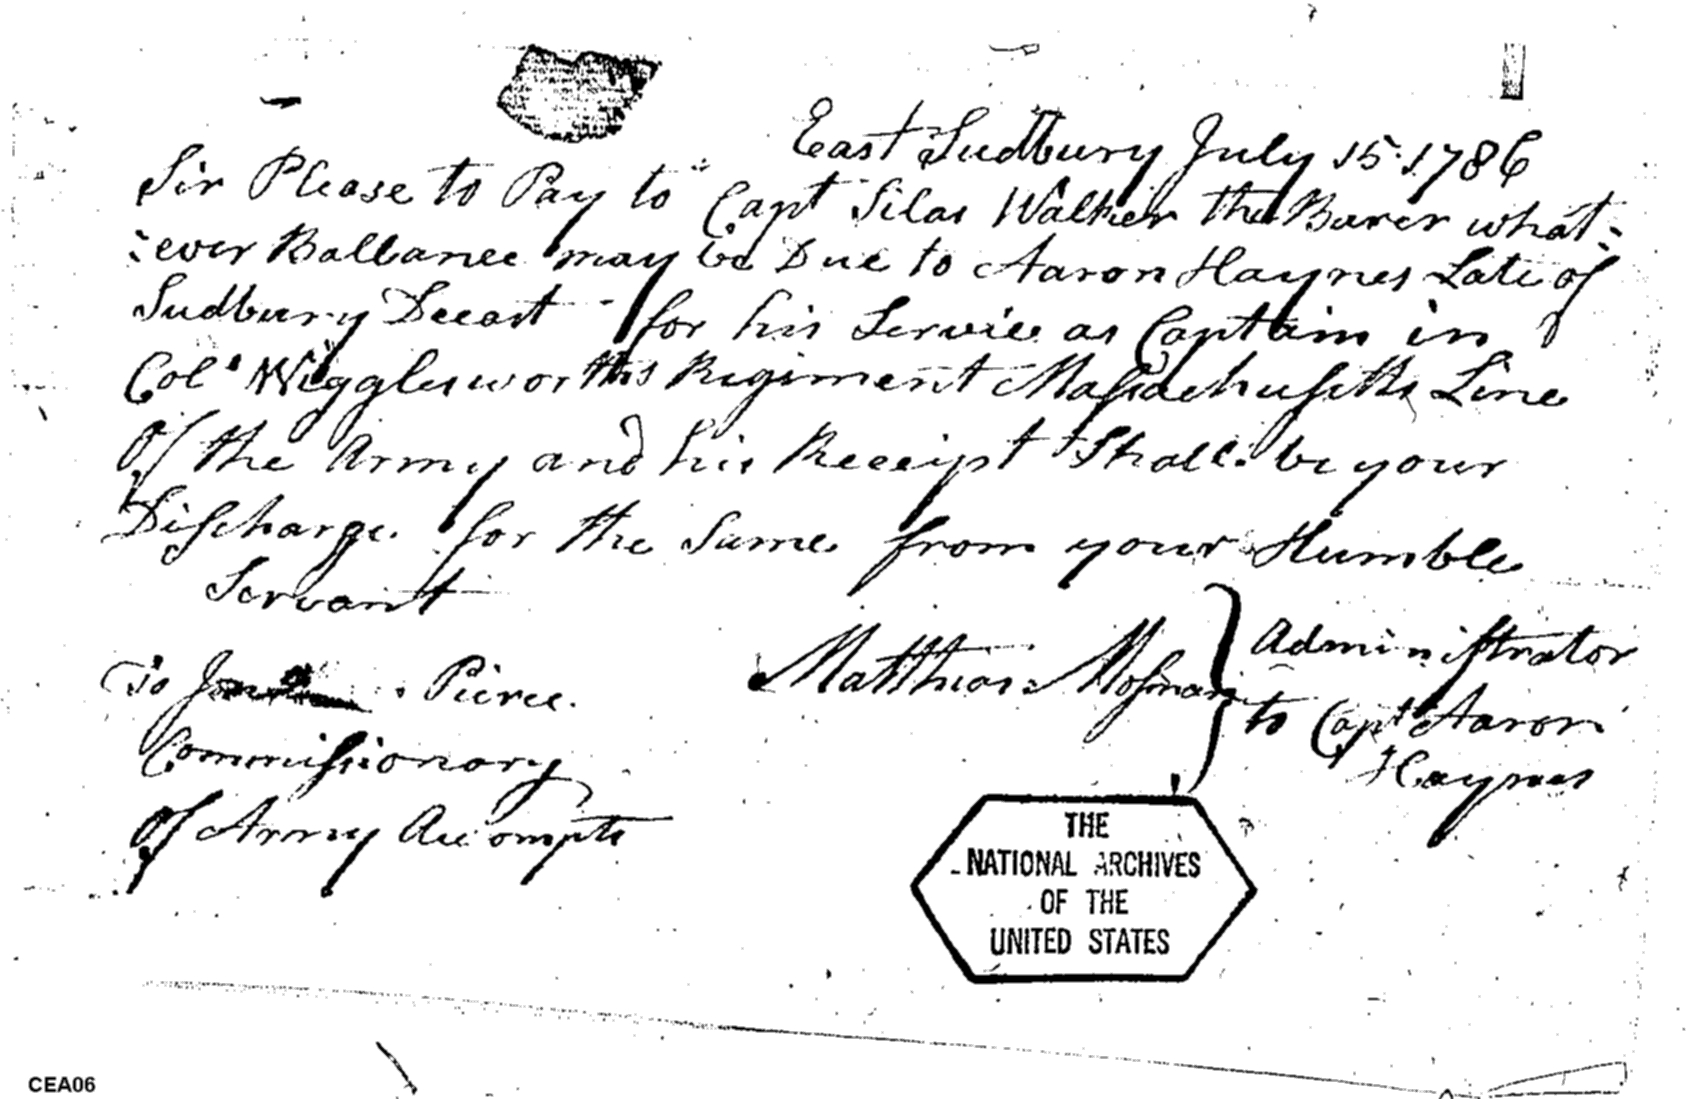 East Sudbury July 15 1786
Sir Please to Pay to Capt Silas Walker the Barer what=
=ever Ballance may be Due to Aaron Haynes Late of
Sudbury Deceast for his Service as Captain in
Col Wigglesworths Regiment Massachusetts Line
Of the Army and his Receipt Shall be your
Discharge for the Same from your Humble
Servant
Matthias Mosman } Administrator
to Capt Aaron
Haynes
To Pierce
Commissionary
Of Army Accompts
THE
NATIONAL ARCHIVES
OF THE
UNITED STATES
CEA06